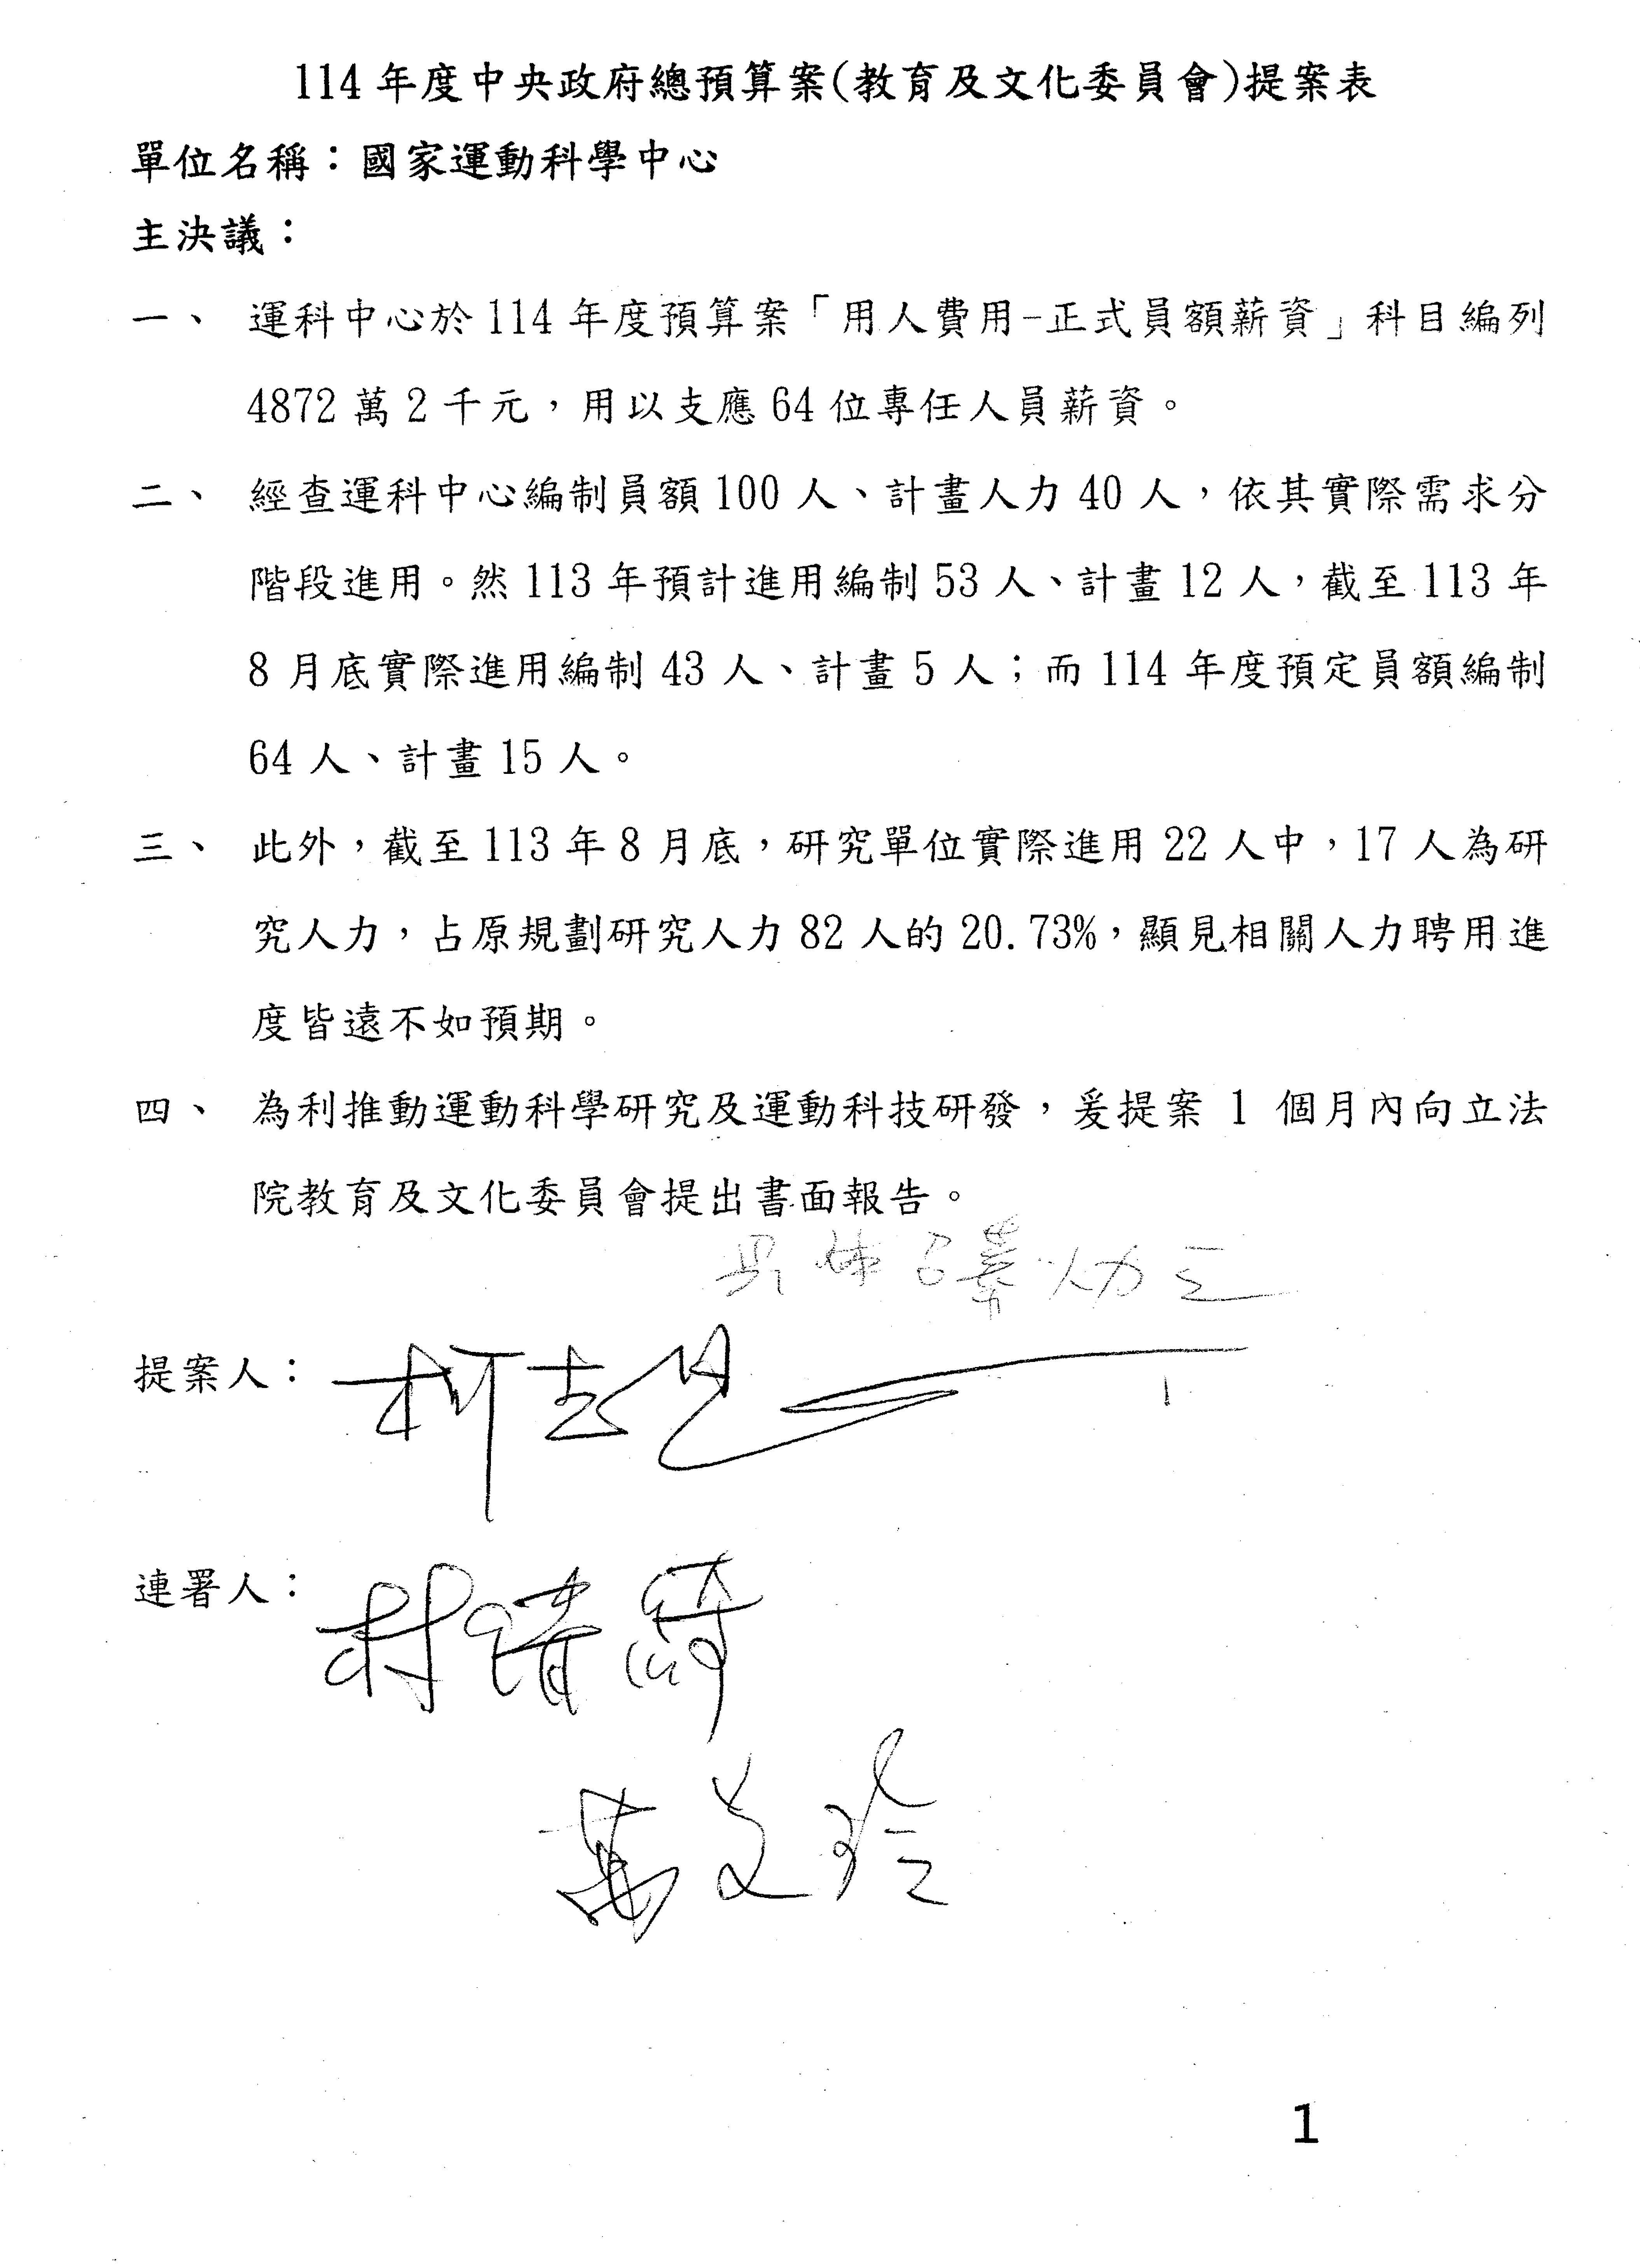 114年度中央政府總預算案(教育及文化委員會)提案表
單位名稱：國家運動科學中心
主決議：
一、 運科中心於114年度預算案「用人費用-正式員額薪資」科目編列
4872萬2千元，用以支應64位專任人員薪資。
二、 經查運科中心編制員額100人、計畫人力40人，依其實際需求分
階段進用。然113年預計進用編制53人、計畫12人，截至113年
8月底實際進用編制43人、計畫5人；而114年度預定員額編制
64人、計畫15人。
三、 此外，截至113年8月底，研究單位實際進用22人中，17人為研
究人力，占原規劃研究人力82人的20.73%，顯見相關人力聘用進
度皆遠不如預期。
四、 為利推動運動科學研究及運動科技研發，爰提案1個月內向立法
院教育及文化委員會提出書面報告。
提案人：柯志恩
連署人：
1